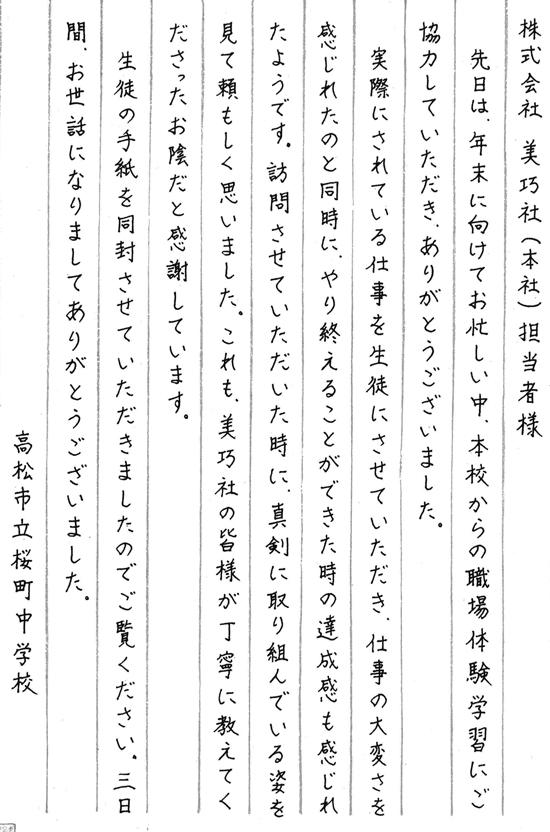 株式会社 美巧社(本社)担当者様
先日は、年末に向けてお忙しい中、本校からの職場体験学習にご
協力していただき、ありがとうございました。
実際にされている仕事を生徒にさせていただき、仕事の大変さを
感じれたのと同時に、やり終えることができた時の達成感も感じれ
たようです。訪問させていただいた時に、真剣に取り組んでいる姿を
見て頼もしく思いました。これも、美巧社の皆様が丁寧に教えてく
ださったお陰だと感謝しています。
生徒の手紙を同封させていただきましたのでご覧ください。三日
間、お世話になりましてありがとうございました。
高松市立桜町中学校